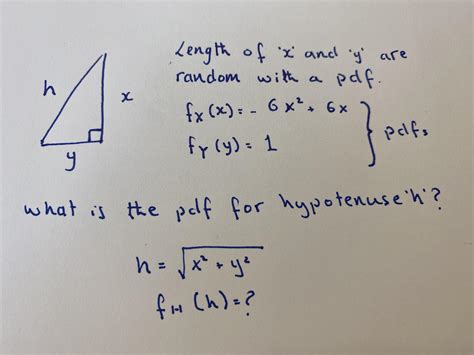 Length of 'x' and 'y' are
random with a pdf.
h
x
y
fx(x) = - 6x² + 6x
fy(y) = 1
pdfs
what is the pdf for hypotenuse 'h'?
h = √x² + y²
fH(h) = ?